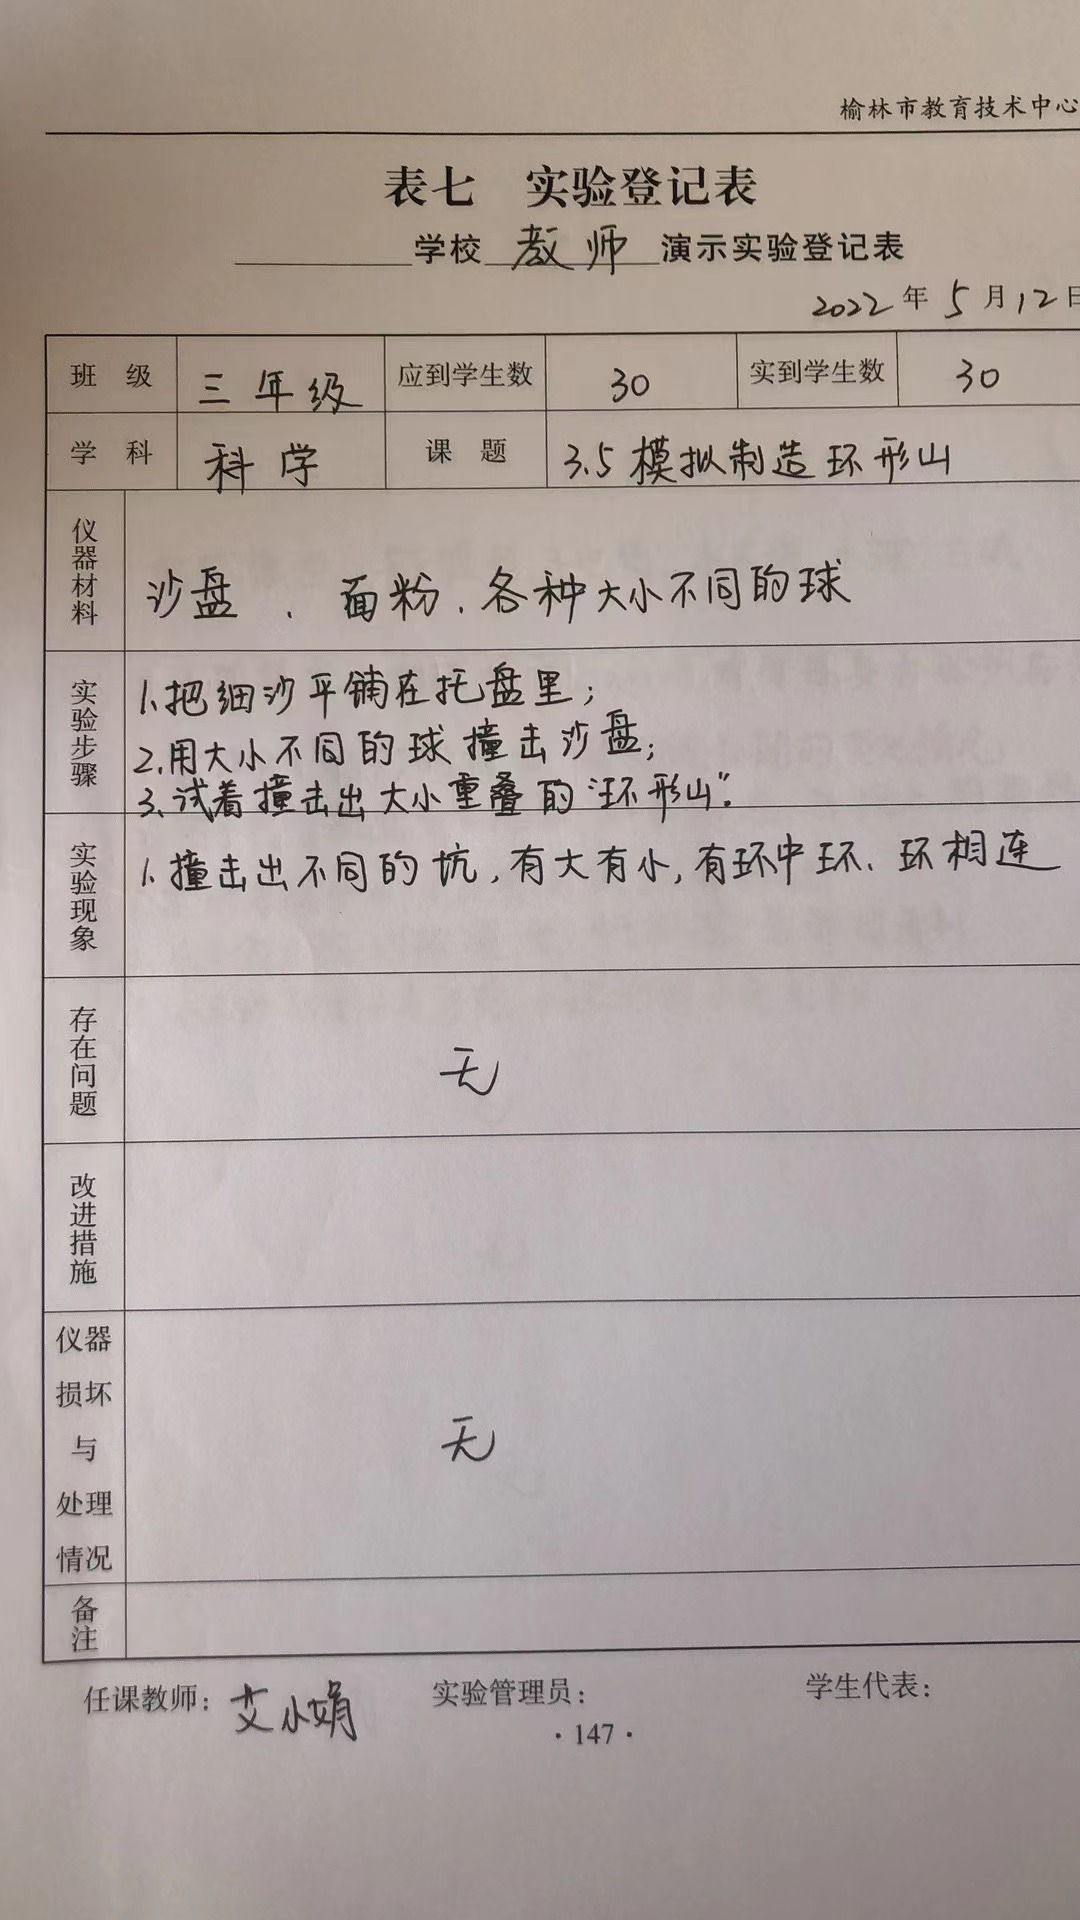 榆林市教育技术中心
表七 实验登记表
学校 教师 演示实验登记表
2022 年 5 月 12 日
班 级 三年级 应到学生数 30 实到学生数 30
学 科 科学 课 题 3.5 模拟制造环形山
仪器材料 沙盘、面粉、各种大小不同的球
实验步骤 1、把细沙平铺在托盘里；
2、用大小不同的球撞击沙盘；
3、试着撞击出大小重叠的“环形山”。
实验现象 1、撞击出不同的坑，有大有小，有环中环、环相连
存在问题 无
改进措施
仪器
损坏
与
处理
情况 无
备注
任课教师：艾小娟 实验管理员： 学生代表：
·147·